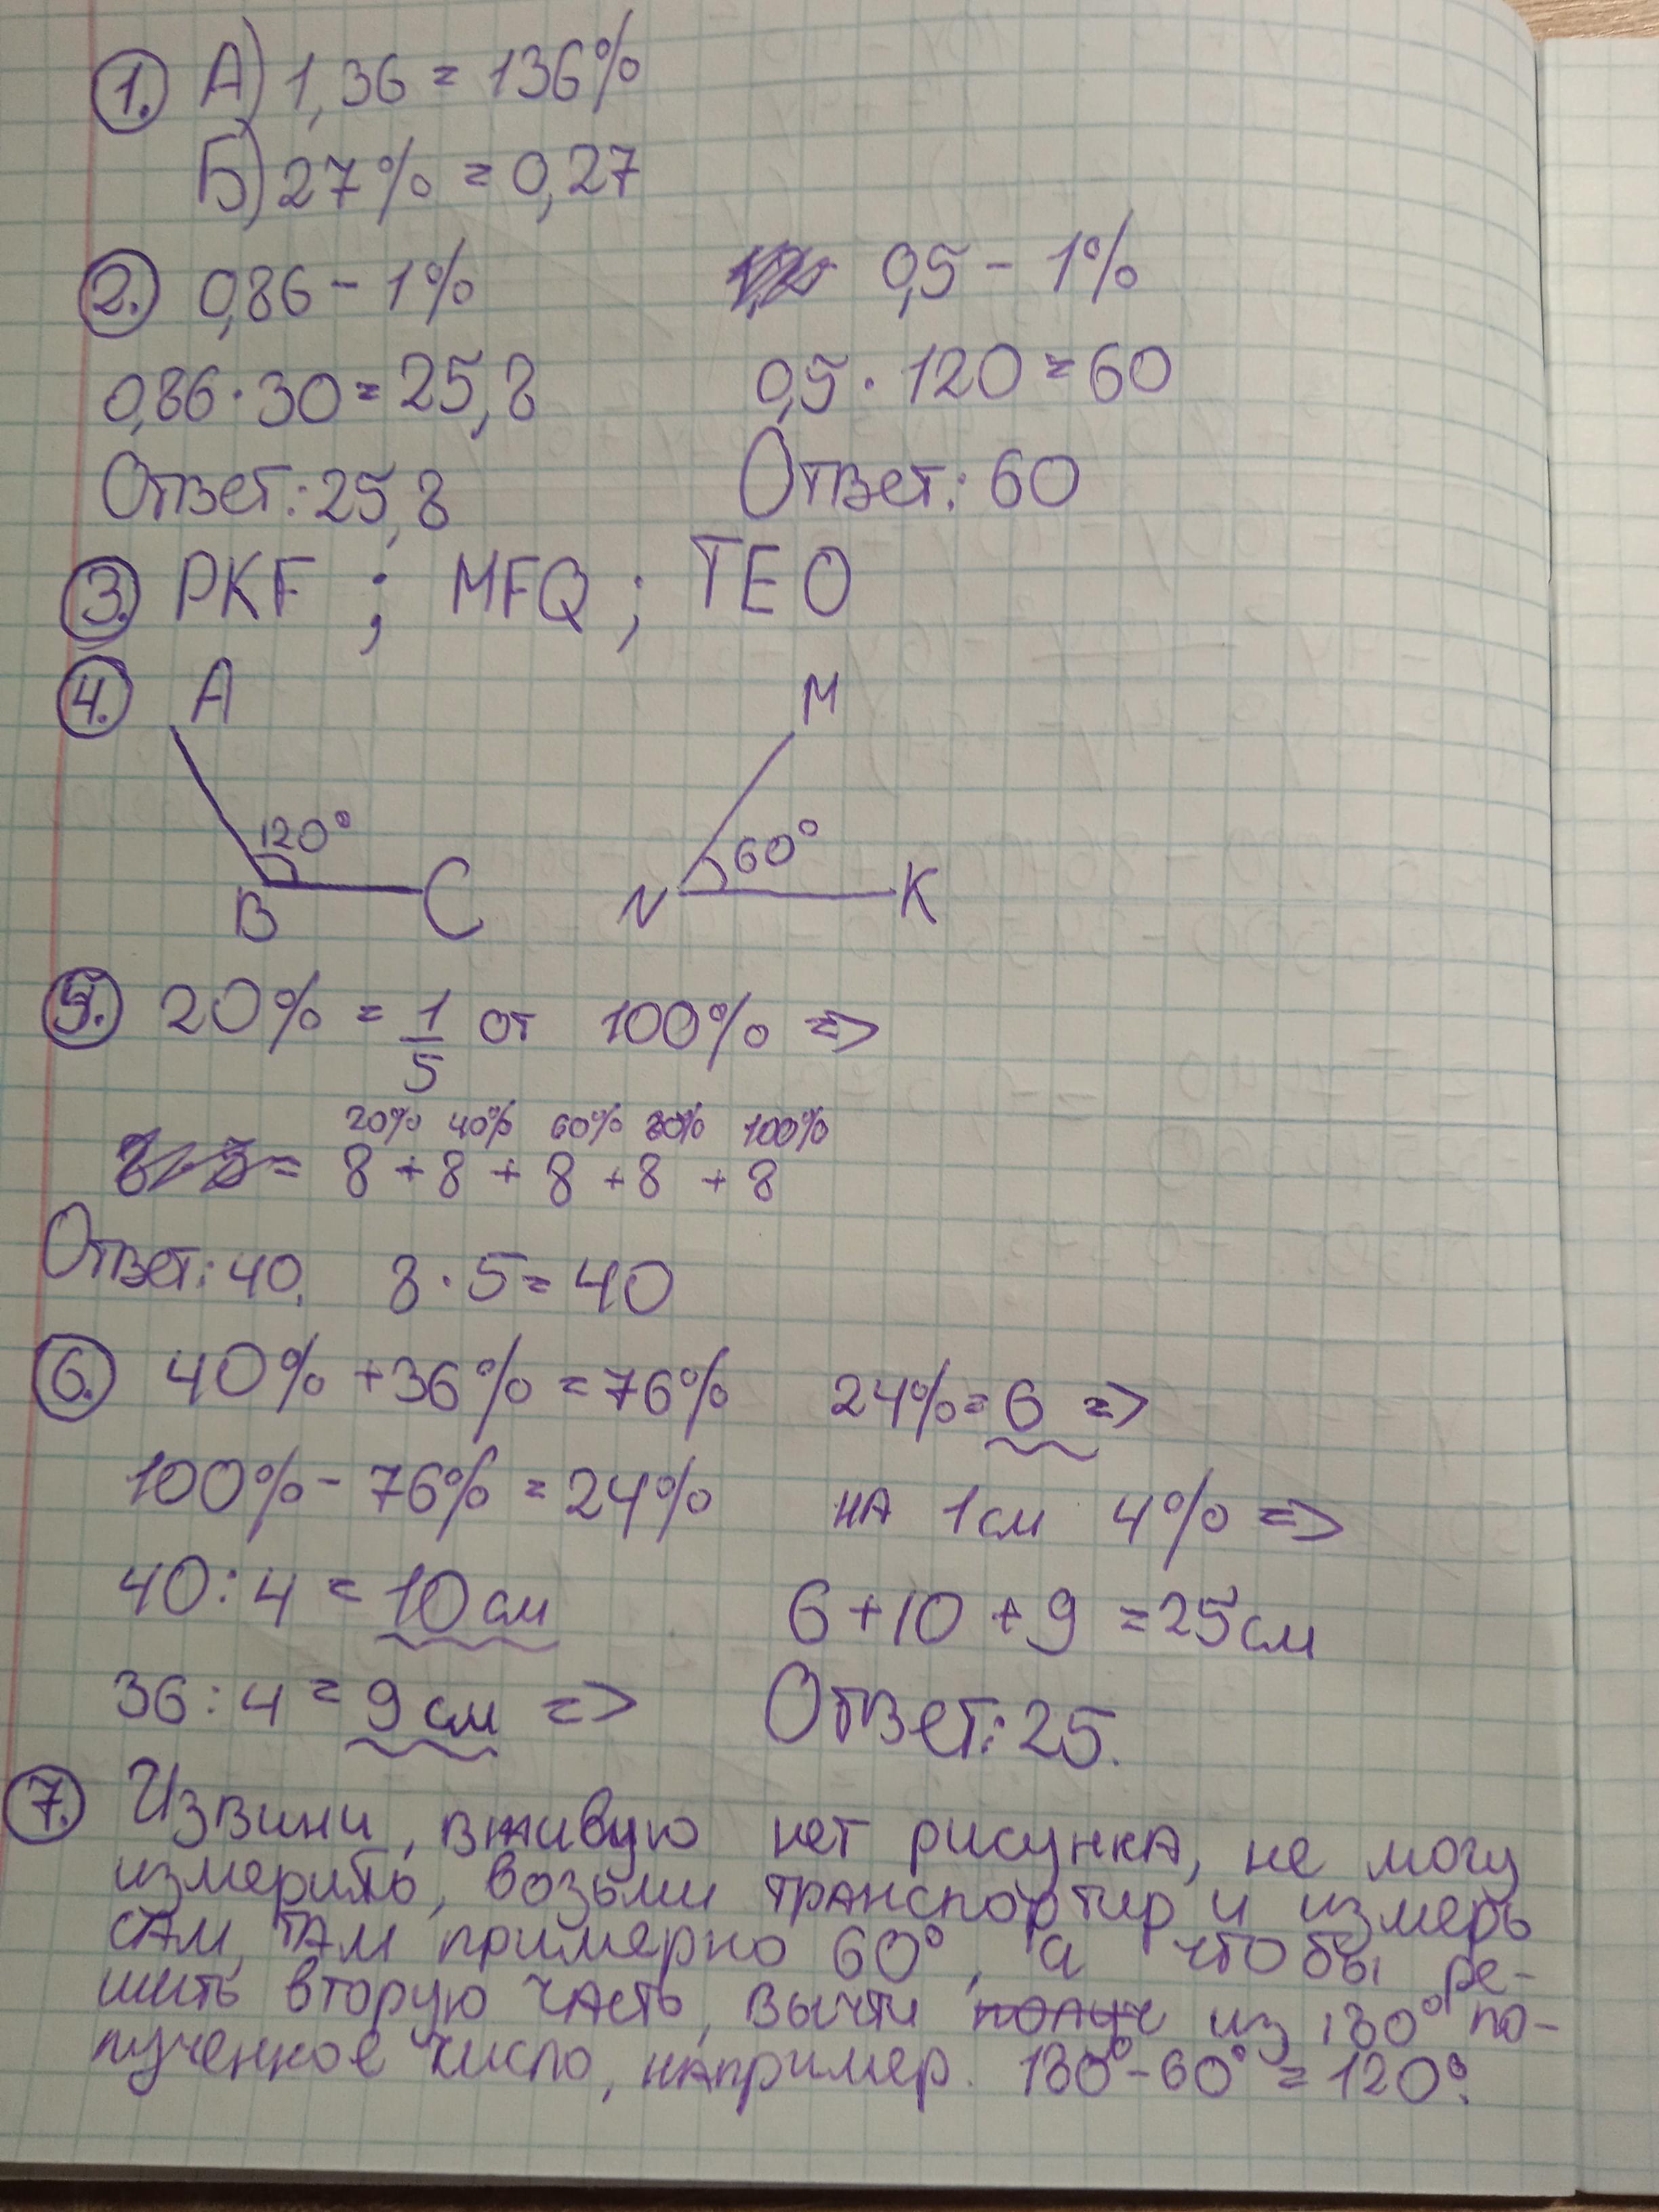 1. А) 1,36 = 136%
Б) 27% = 0,27
2. 0,86 - 1%
0,86 · 30 = 25,8
Ответ: 25,8
0,5 - 1%
0,5 · 120 = 60
Ответ: 60
3. PKF ; MFQ ; TEO
4. A
120°
B C
M
60°
N K
5. 20% = 1/5 от 100% =>
20% 40% 60% 80% 100%
= 8 + 8 + 8 + 8 + 8
Ответ: 40. 8 · 5 = 40
6. 40% + 36% = 76%
100% - 76% = 24%
40 : 4 = 10 см
36 : 4 = 9 см =>
24% = 6 =>
на 1 см 4% =>
6 + 10 + 9 = 25 см
Ответ: 25.
7. Извини, вживую нет рисунка, не могу
измерить, возьми транспортир и измерь
сам, там примерно 60°, а чтобы ре-
шить вторую часть, вычти из 180° по-
лученное число, например. 180° - 60° = 120°.